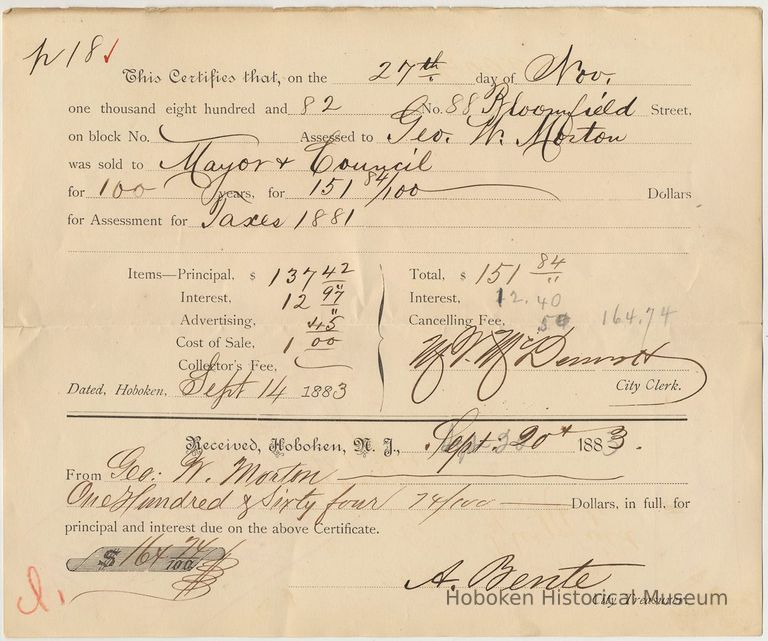 p 18
This Certifies that, on the 27th day of Nov.
one thousand eight hundred and 82 No. 88 Bloomfield Street,
on block No. Assessed to Geo. W. Morton
was sold to Mayor & Council
for 100 years, for 151 84/100 Dollars
for Assessment for Taxes 1881
Items—Principal, $ 137 42 Total, $ 151 84
Interest, 12 97 Interest, 12.40
Advertising, 45 Cancelling Fee, 50 164.74
Cost of Sale, 1 00
Collector's Fee,
Dated, Hoboken, Sept 14 1883 City Clerk.
Received, Hoboken, N. J., Sept. 20th 1883.
From Geo. W. Morton
One Hundred & Sixty four 74/100 Dollars, in full, for
principal and interest due on the above Certificate.
$ 164 74/100
A. Bente
City Treasurer
Hoboken Historical Museum